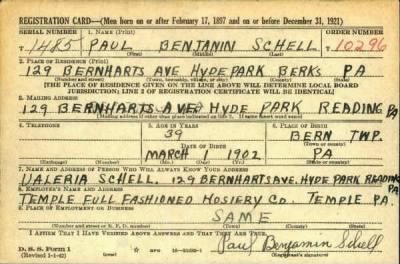 REGISTRATION CARD—(Men born on or after February 17, 1897 and on or before December 31, 1921)
SERIAL NUMBER 1. NAME (Print) ORDER NUMBER
T 1485 PAUL BENJANIN SCHELL T 10296
(First) (Middle) (Last)
2. PLACE OF RESIDENCE (Print)
129 BERNHARTS AVE HYDE PARK BERKS PA
(Number and street) (Town, township, village, or city) (County) (State)
[THE PLACE OF RESIDENCE GIVEN ON THE LINE ABOVE WILL DETERMINE LOCAL BOARD
JURISDICTION; LINE 2 OF REGISTRATION CERTIFICATE WILL BE IDENTICAL]
3. MAILING ADDRESS
129 BERNHARTS AVE HYDE PARK READING PA
[Mailing address if other than place indicated on line 2. If same insert word same]
4. TELEPHONE 5. AGE IN YEARS 6. PLACE OF BIRTH
39 BERN TWP.
DATE OF BIRTH (Town or county)
MARCH 1 1902 PA
(Exchange) (Number) (Mo.) (Day) (Yr.) (State or country)
7. NAME AND ADDRESS OF PERSON WHO WILL ALWAYS KNOW YOUR ADDRESS
VALERIA SCHELL. 129 BERNHARTS AVE. HYDE PARK READING PA
8. EMPLOYER'S NAME AND ADDRESS
TEMPLE FULL FASHIONED HOSIERY CO. TEMPLE PA.
9. PLACE OF EMPLOYMENT OR BUSINESS
SAME
(Number and street or R. F. D. number) (Town) (County) (State)
I AFFIRM THAT I HAVE VERIFIED ABOVE ANSWERS AND THAT THEY ARE TRUE.
D. S. S. Form 1
(Revised 1-1-42) GPO Paul Benjamin Schell
(over) (Registrant's signature)